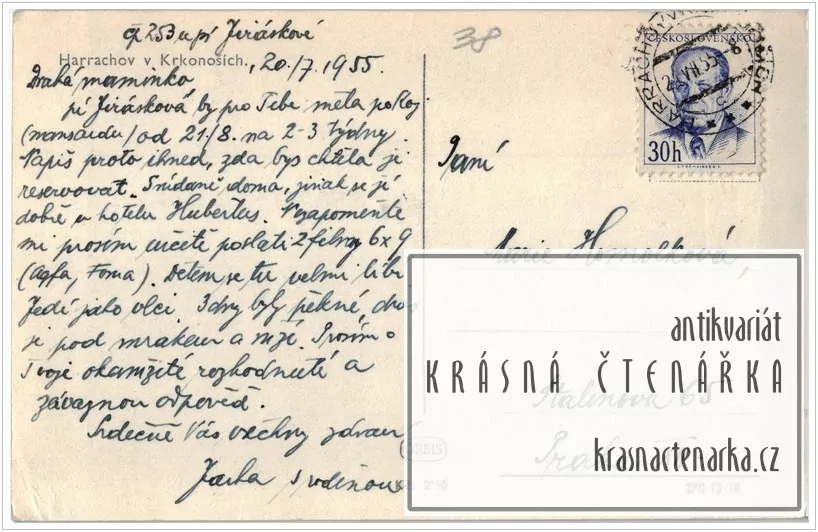 čp 253 u pí Jiráskové
38
Harrachov v Krkonoších, 20./7. 1955.
Drahá maminko
pí Jirásková by pro Tebe měla pokoj
(mansardu) od 21./8. na 2-3 týdny.
Napiš proto ihned, zda bys chtěla jej
reservovat. Snídaně doma, jinak se jí
dobře u hotelu Hubertus. Nezapomeňte
mi prosím určitě poslati 2 filmy 6x9
(Agfa, Foma). Dětem se tu velmi líbí
Jedí jako vlci. 3 dny byly pěkné, dnes
je pod mrakem a
Prosím o
Tvoje okamžité rozhodnutí a
závaznou odpověď.
Srdečně Vás všechny zdraví
s rodinou
ČESKOSLOVENSKO
30h
Paní
Marie Homolková,
Stalinova 65
Praha
ORBIS
Kčs 2'50
antikvariát
KRÁSNÁ ČTENÁŘKA
krasnactenarka.cz